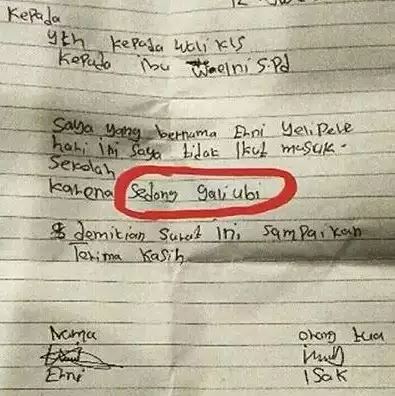 Kepada
yth kepada wali kls
kepada ibu Welni S.Pd
Saya yang bernama Erni Yelipele
hari ini saya tidak ikut masuk
sekolah
karena sedang gali ubi
demikian surat ini, sampaikan
Terima kasih
Nama orang tua
Erni ISak